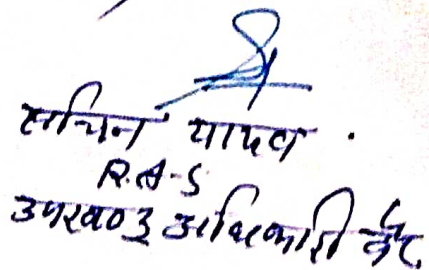 सचिन यादव
R.A.S
उपखण्ड अधिकारी